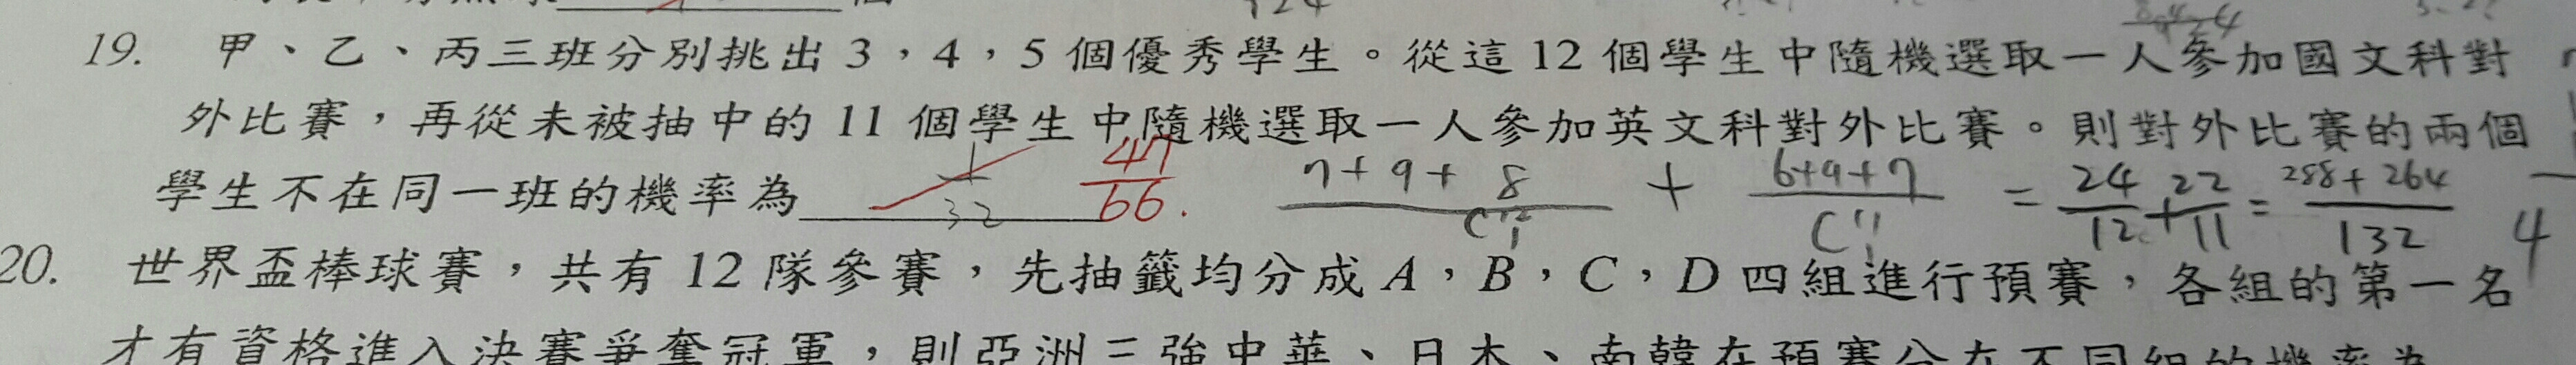 19. 甲、乙、丙三班分別挑出 3，4，5 個優秀學生。從這 12 個學生中隨機選取一人參加國文科對
外比賽，再從未被抽中的 11 個學生中隨機選取一人參加英文科對外比賽。則對外比賽的兩個
學生不在同一班的機率為 47/66. (7+9+8)/C¹²₁ + (6+9+7)/C¹¹₁ = 24/12 + 22/11 = (288+264)/132
20. 世界盃棒球賽，共有 12 隊參賽，先抽籤均分成 A，B，C，D 四組進行預賽，各組的第一名
才有資格進入決賽爭奪冠軍，則亞洲三強中華、日本、南韓在預賽分在不同組的機率為